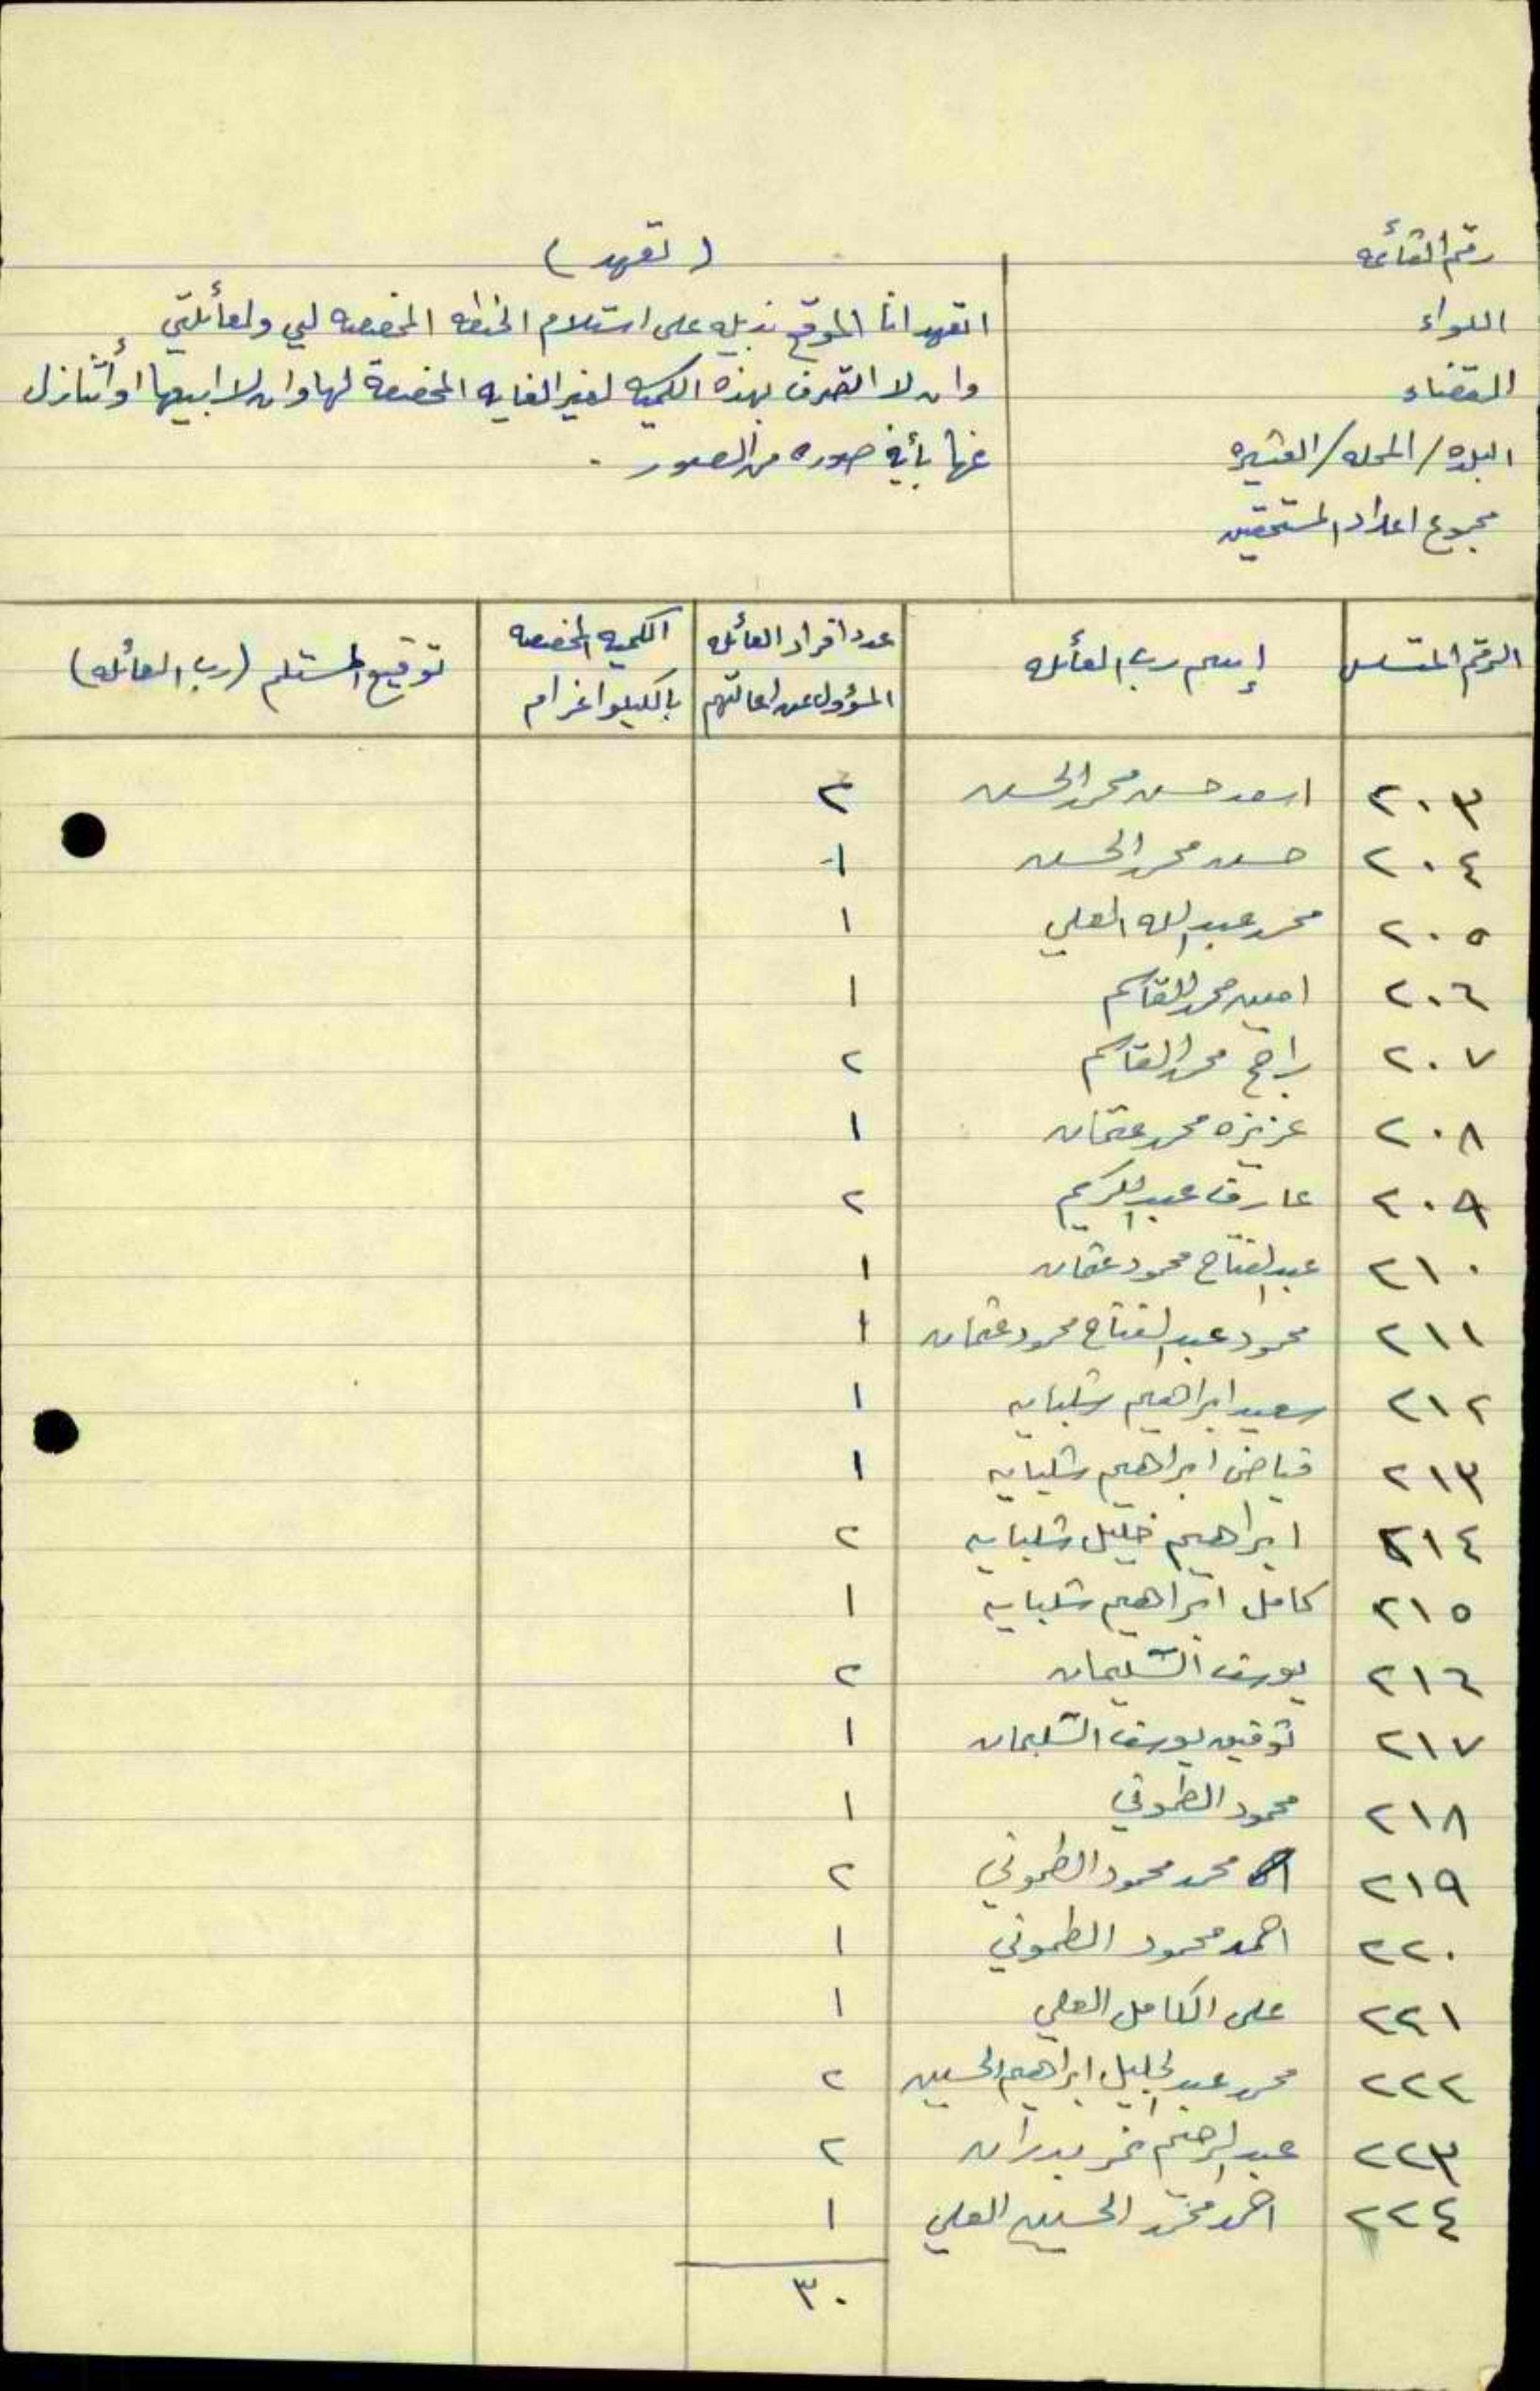 رقم القائمه
اللواء
القضاء
البلده / المحله / العشيره
مجموع اعداد المستحقين
( تعهد )
اتعهد انا الموقع بذيله على استلام الحنطه المخصصه لي ولعائلتي
وان لا اتصرف بهذه الكميه لغير الغايه المخصصة لها وان لا ابيعها او أتنازل
عنها بأية صوره من الصور .
الرقم المتسلسل إسم رب العائله عدد افراد العائله المسؤول عن اعالتهم الكميه المخصصه بالكيلو اغرام توقيع المستلم (رب العائله)
٢٠٣ اسعد حسن محمد الحسن ٢
٢٠٤ حسن محمد الحسن ١
٢٠٥ محمد عبد الله العلي ١
٢٠٦ امين محمد القاسم ١
٢٠٧ راجح محمد القاسم ٢
٢٠٨ عزيزه محمد عثمان ١
٢٠٩ عارف عبد الكريم ٢
٢١٠ عبد الفتاح محمود عثمان ١
٢١١ محمود عبد الفتاح محمود عثمان ١
٢١٢ سعيد ابراهيم شلبايه ١
٢١٣ فياض ابراهيم شلبايه ١
٢١٤ ابراهيم خليل شلبايه ٢
٢١٥ كامل ابراهيم شلبايه ١
٢١٦ يوسف السليمان ٢
٢١٧ توفيق يوسف السليمان ١
٢١٨ محمود الطموني ١
٢١٩ محمد محمود الطموني ٢
٢٢٠ احمد محمود الطموني ١
٢٢١ على الكامل العلي ١
٢٢٢ محمد عبد الجليل ابراهيم الحسين ٢
٢٢٣ عبد الرحيم نمر بدران ٢
٢٢٤ احمد محمد الحسين العلي ١
٣٠